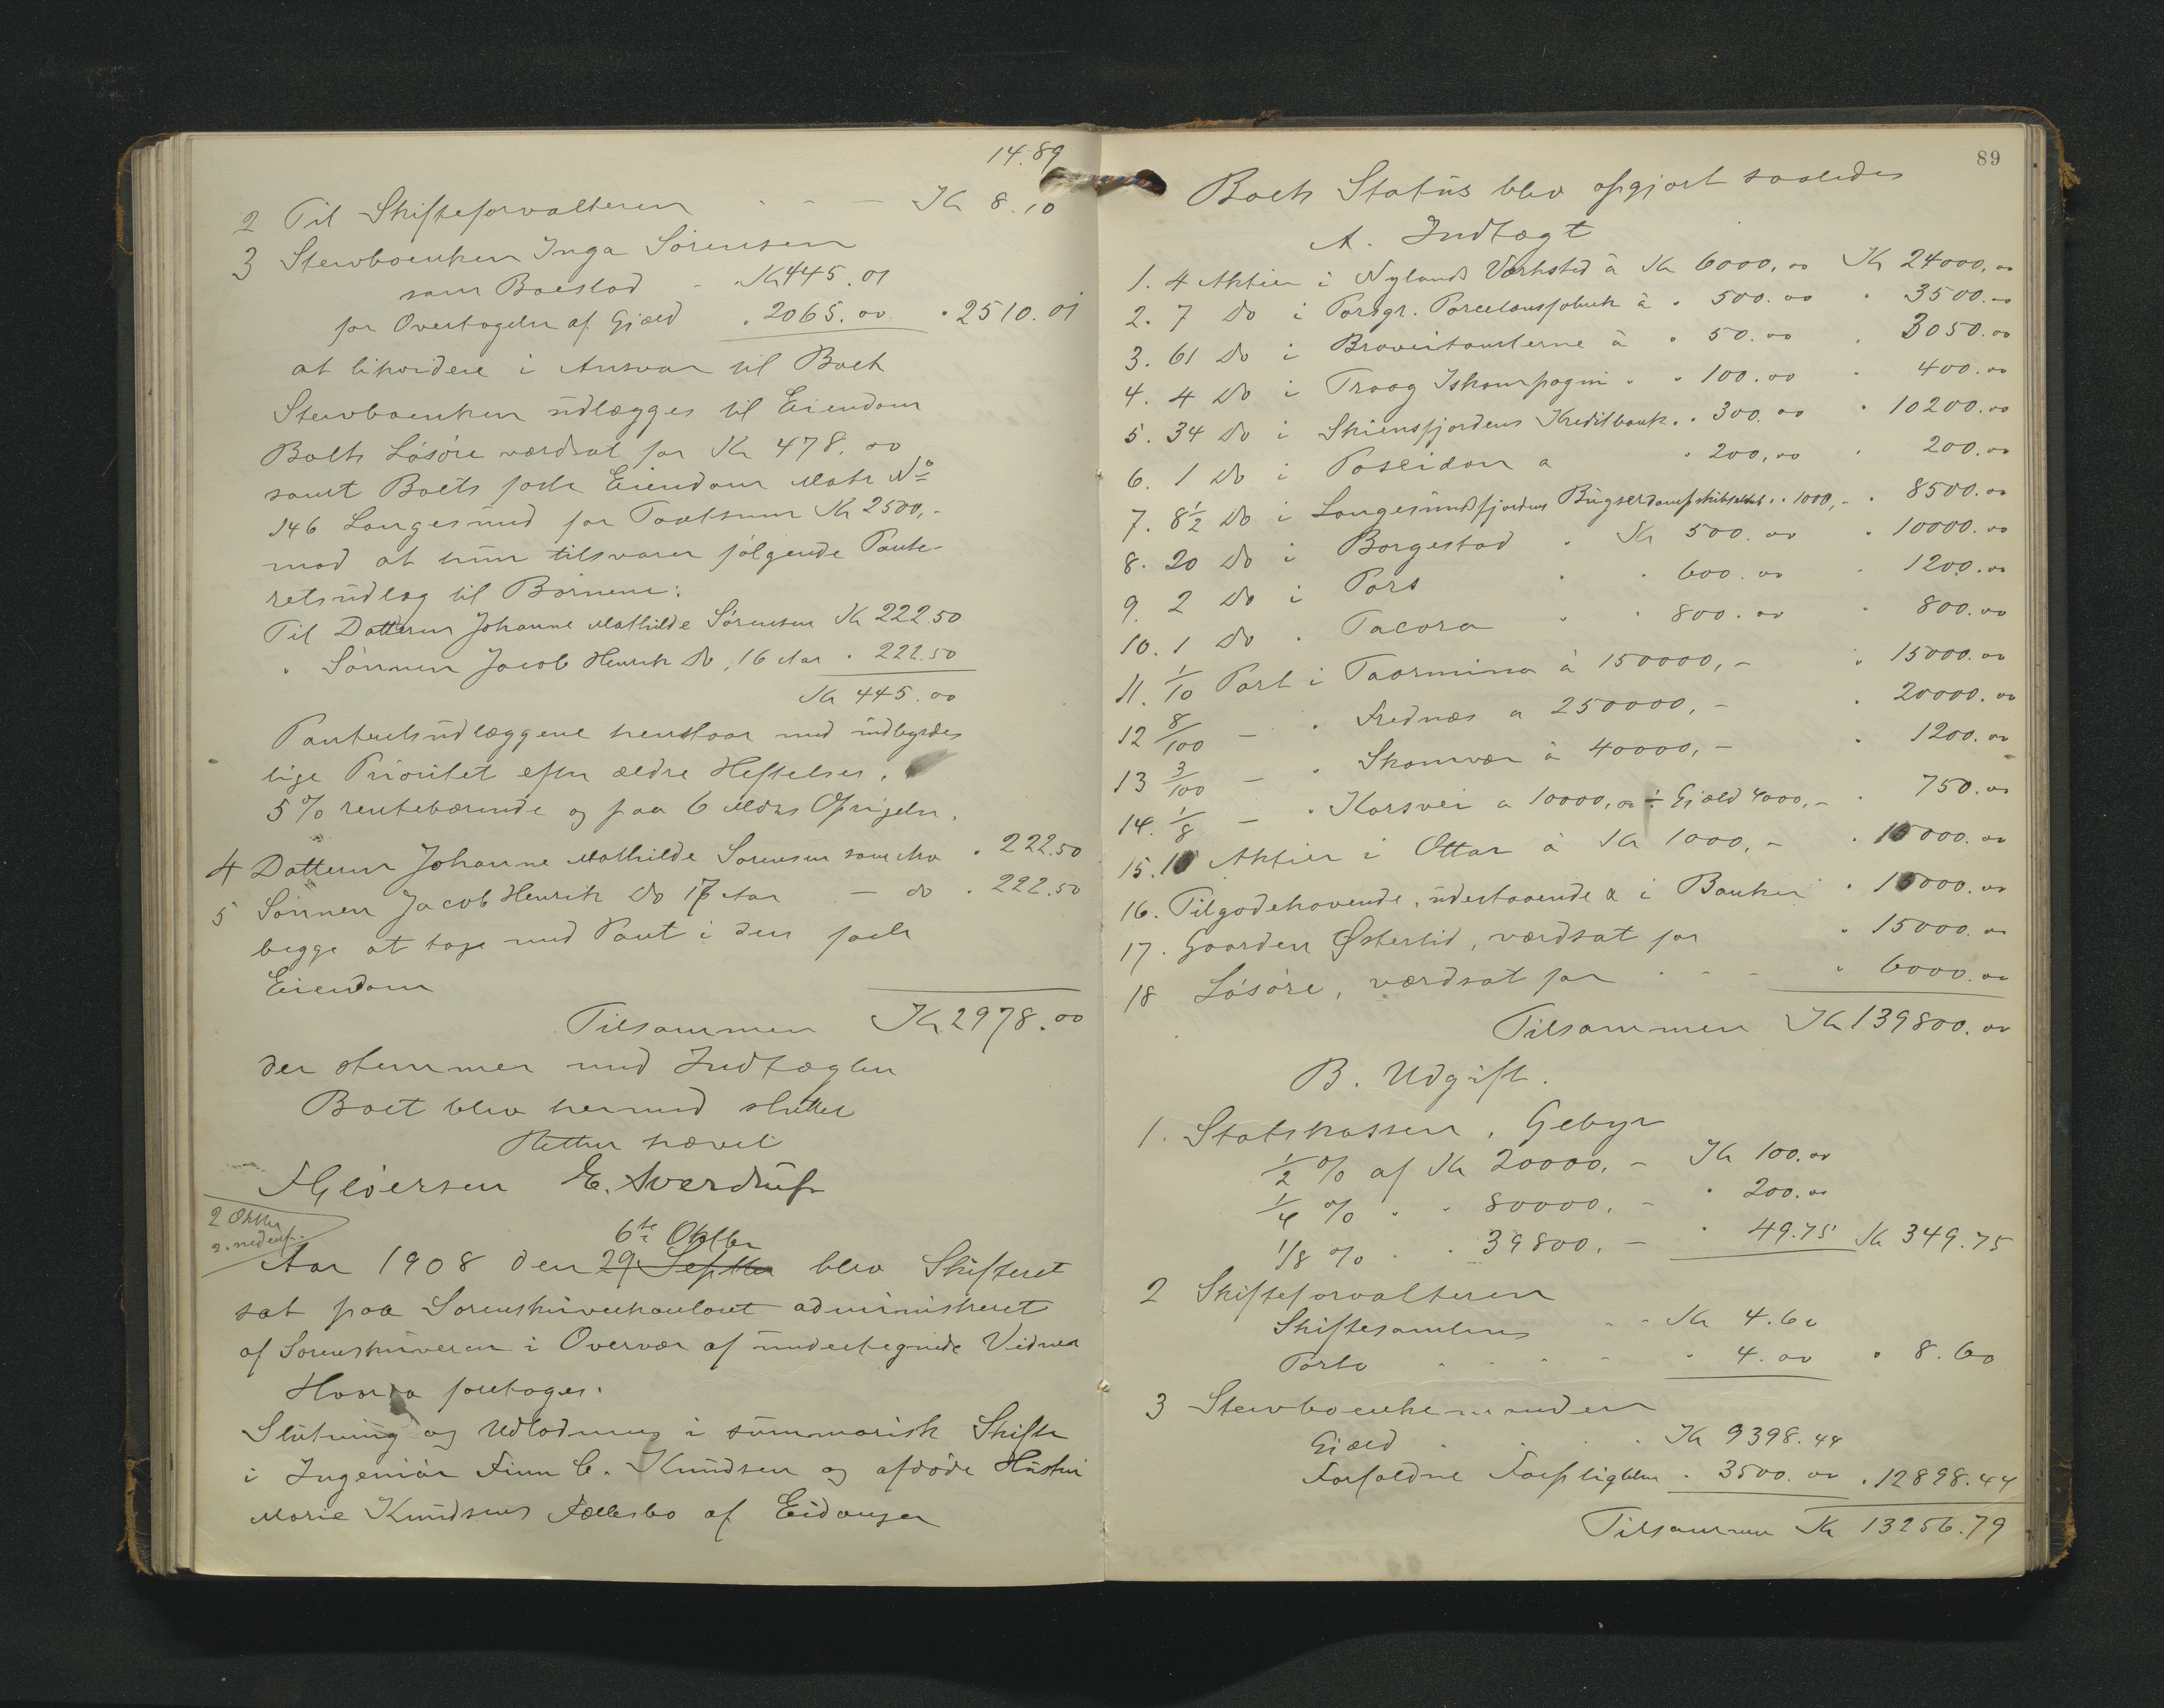 14.89
2 Til Skifteforvalteren - - - Kr 8.10
3 Stervboenken Inga Sörensen
som Boeslod - Kr 445.01
for Overtagelse af Gjæld " 2065.00 " 2510.01
at likvidere i Ansvar til Boet
Stervboenken üdlægges til Eiendom
Boets Lösöre værdsat for Kr 478.00
samt Boets faste Eiendom Matr No
146 Langesünd for Taxtsum Kr 2500,-
mod at hün tilsvarer fölgende Pante-
retsüdlæg til Börnene:
Til Datteren Johanne Mathilde Sörensen Kr 222.50
" Sönnen Jacob Henrik Do, 16 Aar " 222.50
Kr 445.00
Panteretsüdlæggene henstaar med indbyrdes
lige Prioritet efter ældre Heftelser,
5 % rentebærende og paa 6 Mdrs Opsigelse.
4 Datteren Johanne Mathilde Sörensen som Arv " 222.50
5 Sönnen Jacob Henrik Do 17 Aar - do " 222.50
begge at tage med Pant i den faste
Eiendom
Tilsammen Kr 2978.00
der stemmer med Indtægten
Boet blev hermed sluttet
Retten hævet
E. Sverdrüp
2 Oktbr
2. nedenf.
6te Oktbr
Aar 1908 den 29 Septbr blev Skifteret
sat paa Sorenskriverkontoret administreret
af Sorenskriveren i Overvær af ündertegnede Vidner
Hvorda foretoges:
Slütning og Udlodning i sümmarisk Skifte
i Ingeniör Finn C. Knüdsen og afdöde Hüstrü
Marie Knüdsens Fællesbo af Eidanger
89
Boets Statüs blev opgjort saaledes
A. Indtægt
1. 4 Aktier i Nylands Værksted à Kr 6000,00 Kr 24000,00
2. 7 Do i Porsgr. Porcelænsfabrik à " 500.00 " 3500.00
3. 61 Do i Brøveitomterne à " 50.00 " 3050.00
4. 4 Do i Traag Iskompagni " " 100.00 " 400.00
5. 34 Do i Skiensfjordens Kreditbank " " 300.00 " 10200.00
6. 1 Do i Poseidon a " 200,00 " 200.00
7. 8½ Do i Langesündsfjordens Bügserdampskibselskab " " 1000,- " 8500.00
8. 20 Do i Borgestad " Kr 500.00 " 10000.00
9. 2 Do i Pors " " 600.00 " 1200.00
10. 1 Do " Tacora " " 800.00 " 800.00
11. 1/10 Part i Taormina à 150000,- " 15000.00
12 8/100 - " Frednæs a 250000,- " 20000.00
13 3/100 - " Skomvær à 40000,- " 1200.00
14. 1/8 - " Korsvei a 10000,00 ÷ Gjæld 4000,- " 750.00
15. 10 Aktier i Ottar à Kr 1000,- " 10000.00
16. Tilgodehavende, üdestaaende & i Banken " 10000.00
17. Gaarden Østerlid, værdsat for " 15000.00
18 Lösöre, værdsat for - - - " 6000.00
Tilsammen Kr 139800.00
B. Udgift.
1. Statskassen, Gebyr
½ % af Kr 20000,- Kr 100.00
¼ % " " 80000,- " 200.00
1/8 % " " 39800,- " 49.75 Kr 349.75
2 Skifteforvalteren
Skiftesamling - - Kr 4.60
Porto - - - - " 4.00 " 8.60
3 Stervboenkemanden
Gjæld . . . Kr 9398.44
Forfaldne Forpligtelser " 3500.00 " 12898.44
Tilsammen Kr 13256.79